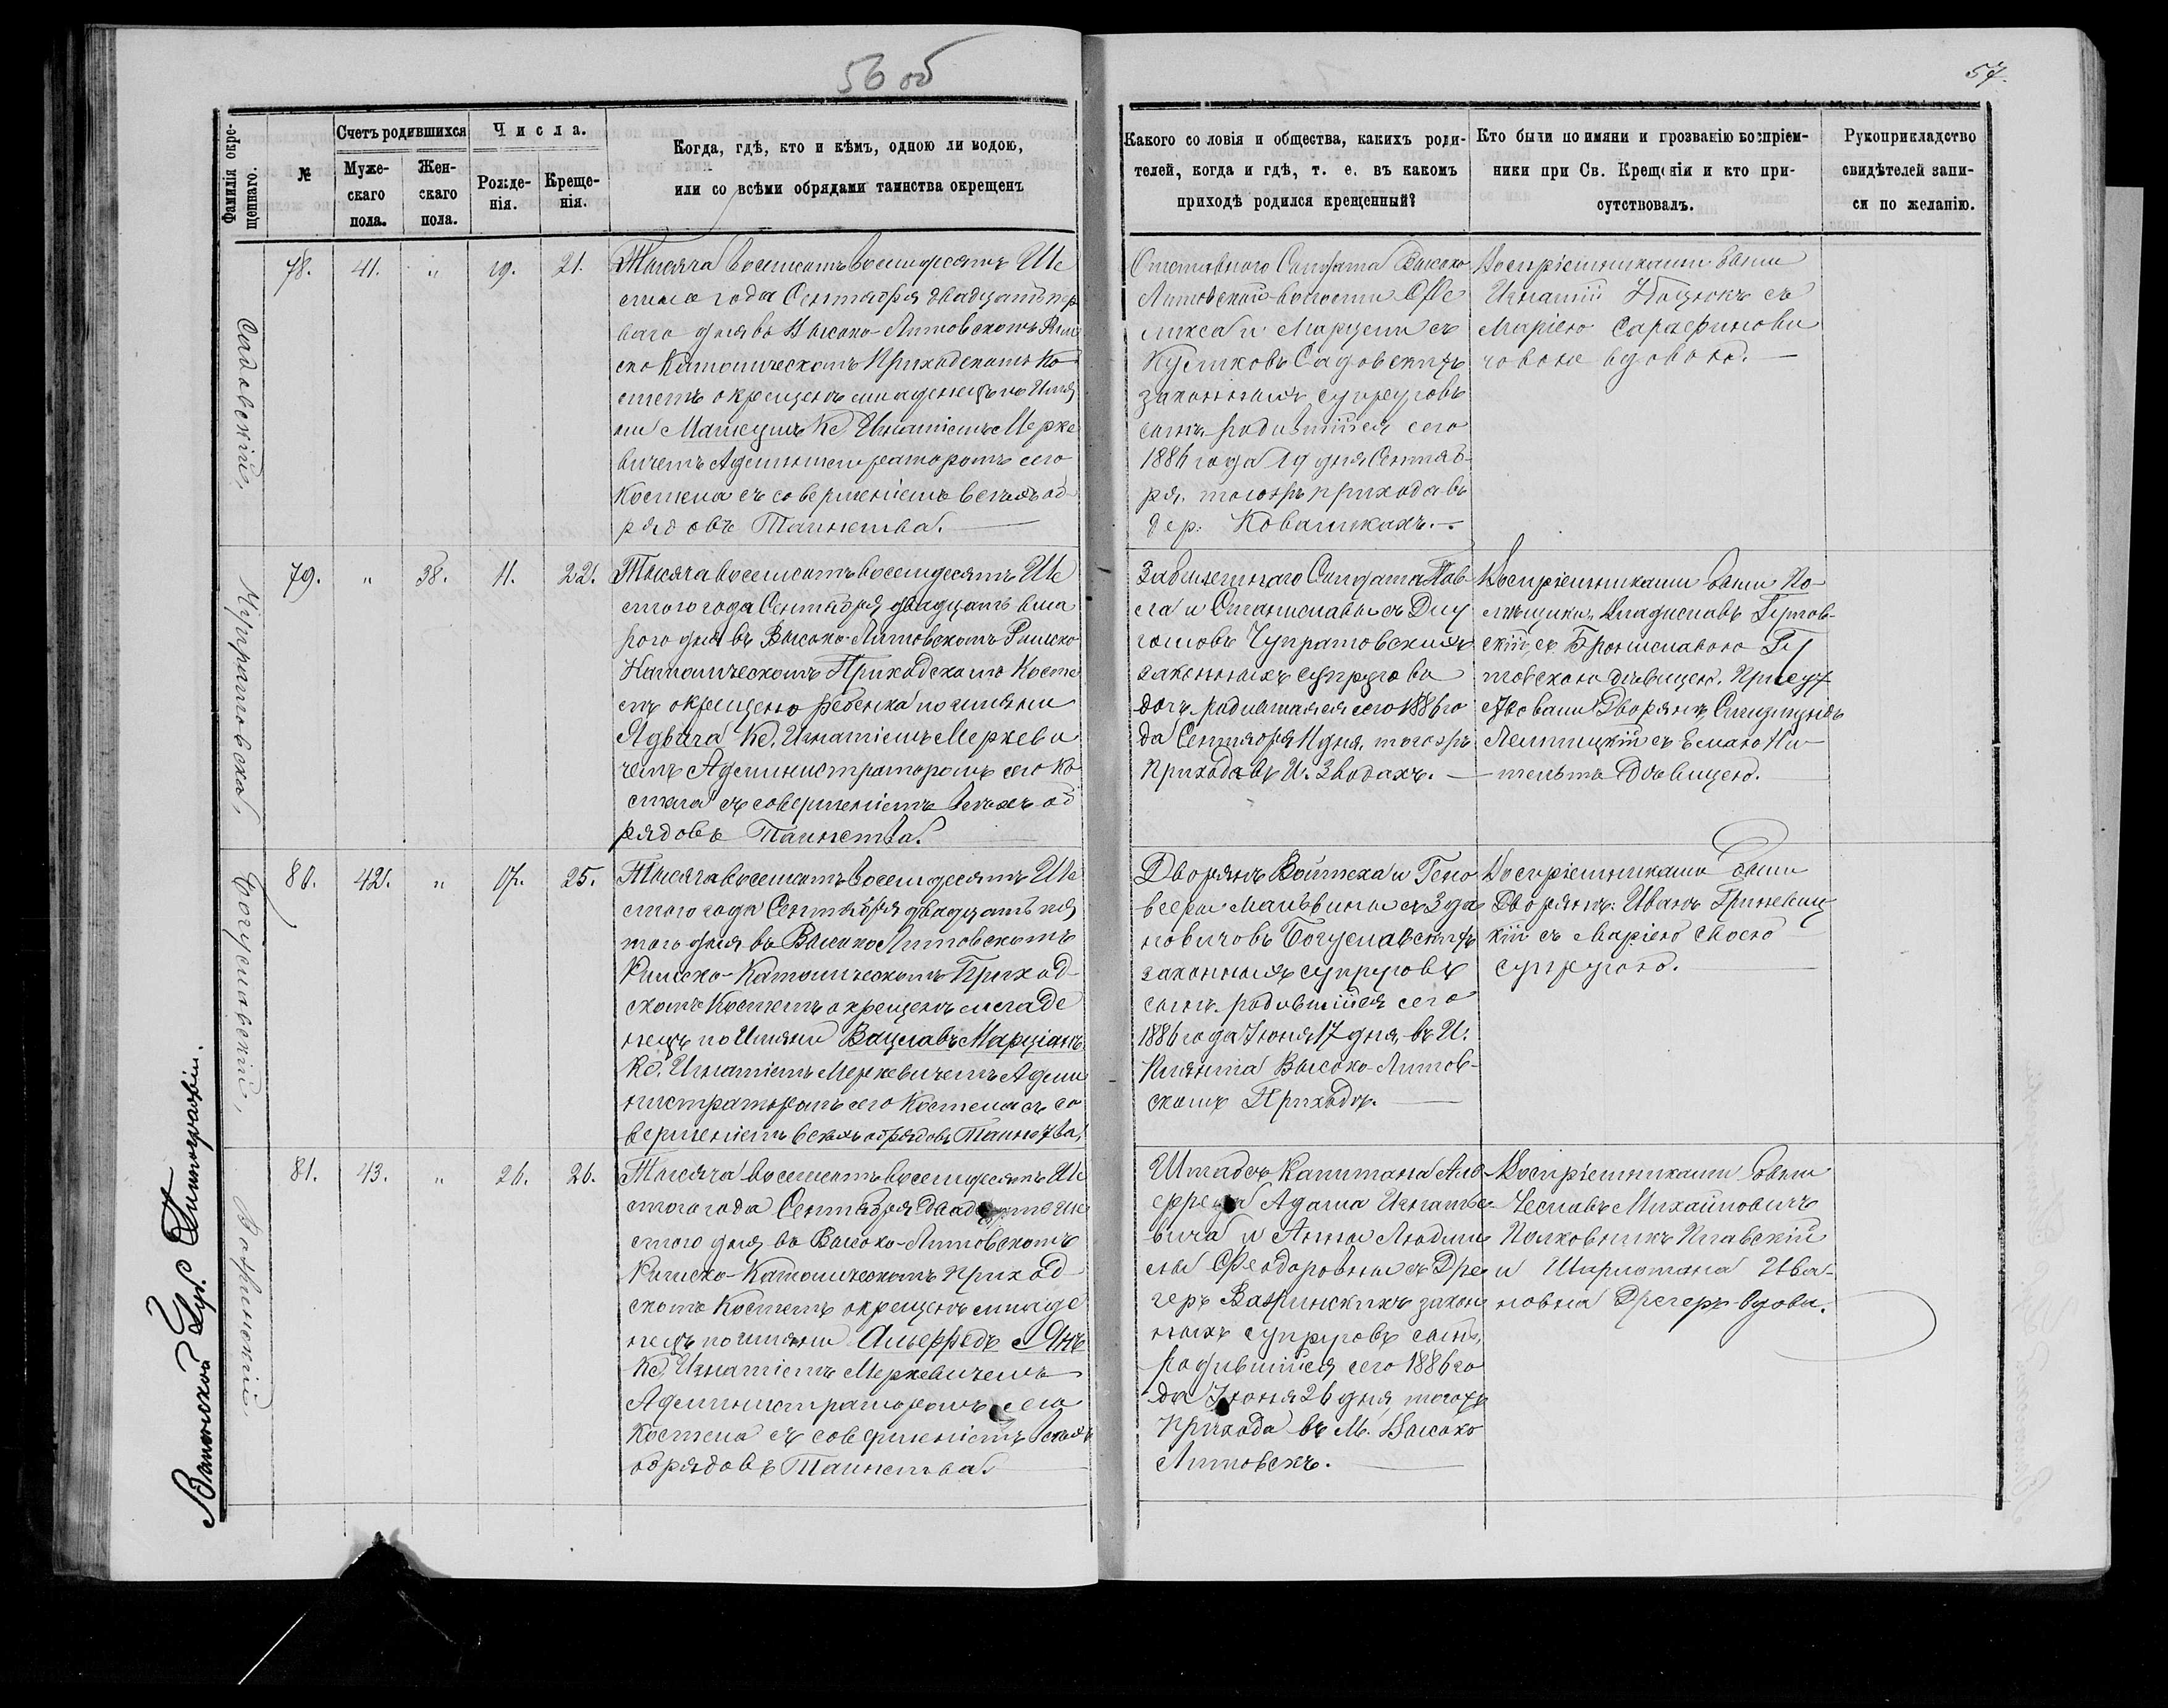 56 об
57.
Фамилія окре-
щеннаго.
№
Счетъ родившихся
Муже-
скаго
пола.
Жен-
скаго
пола.
Числа.
Рожде-
нія.
Креще-
нія.
Когда, гдѣ, кто и кѣмъ, одною ли водою,
или со всѣми обрядами таинства окрещенъ
Какого сословія и общества, какихъ роди-
телей, когда и гдѣ, т. е. въ какомъ
приходѣ родился крещенный?
Кто были по имяни и прозванію воспріем-
ники при Св. Крещеніи и кто при-
сутствовалъ.
Рукоприкладство
свидѣтелей запи-
си по желанію.
Садовскій,
78. 41. " 19. 21.
Тысяча восемсотъ восемдесятъ Ше
стого года Сентября двадцать пер
ваго дня въ Высоко-Литовскомъ Рим
ско Католическомъ Приходскомъ Ко
стелѣ окрещенъ младенецъ по Имя
ни Матеушъ Кс. Игнатіемъ Мерке
вичемъ Администраторомъ сего
Костела съ совершеніемъ всѣхъ об
рядовъ Таинства.
Отставного Солдата Высоко
Литовской волости Фе
ликса и Марцели съ
Садовскихъ
законныхъ супруговъ
сынъ, родившійся сего
1886 года 19 дня Сентяб-
ря, тогожъ прихода въ
дер.
Воспріемниками были
Игнатій съ
Маріею Сарафинови
човою вдовою.
Чупратовска,
79. " 38. 11. 22.
Тысяча восемсотъ восемдесятъ Ше
стого года Сентября двадцать вта
рого дня въ Высоко-Литовскомъ Римско
Католическомъ Приходскомъ Косте
лѣ окрещено ребенка по имяни
Ядвига Кс. Игнатіемъ Меркеви
чемъ Администраторомъ сего Ко
стела съ совершеніемъ всѣхъ об
рядовъ Таинства.
Солдата Пав-
ла и Станиславы съ
Чупратовскихъ
законныхъ супругова
дочь, родившаяся сего 1886 го
да Сентября 11 дня, тогожъ
Прихода въ И. Зводахъ.
Воспріемниками были По-
мѣщики: Владиславъ
скій, съ Брониславою
товскою дѣвицею. Присут
ствовали Дворянъ,
съ
Дѣвицею.
Богуславскій,
80. 42. " 17. 25.
Тысяча восемсотъ восемдесятъ Ше
стого года Сентября двадцать пя
того дня въ Высоко Литовскомъ
Римско-Католическомъ Приход-
скомъ Костелѣ окрещенъ младе
нецъ по Имяни Вацлавъ Марціанъ
Кс. Игнатіемъ Меркевичемъ Адми
нистраторомъ сего Костела съ со
вершеніемъ всѣхъ обрядовъ Таинства.
Дворянъ Войтеха и Гено
веѳы Мальвины съ Зда
новичовъ Богуславскихъ
законныхъ супруговъ
сынъ, родившійся сего
1886 года Іюня 17 дня, въ И.
Высоко-Литов-
скомъ Приходѣ.
Воспріемниками были
Дворянъ: Иванъ Гриневиц
кій съ Маріею своею
супругою.
81. 43. " 26. 26.
Тысяча восемсотъ восемдесятъ Ше
стого года Сентября двадцать Ше
стого дня, въ Высоко-Литовскомъ
Римско-Католическомъ Приход-
скомъ Костелѣ окрещенъ младе
нецъ по имяни Альфредъ Янъ
Кс. Игнатіемъ Меркевичемъ
Администраторомъ сего
Костела съ совершеніемъ всѣхъ
обрядовъ Таинства.
Штабсъ Капитана Аль-
Адама Игнатье-
вича и Анны Людми
лы Феодоровны съ Дре
геръ закон
ныхъ супруговъ сынъ,
родившійся сего 1886 го
да Іюня 26 дня, тогожъ
Прихода въ М. Высоко
Литовскъ.
Воспріемниками были
Чеславъ Михайловичъ
Полковникъ
и Шарлотана Ива-
новна Дрегеръ вдова.
Виленской Губ. Типографіи.